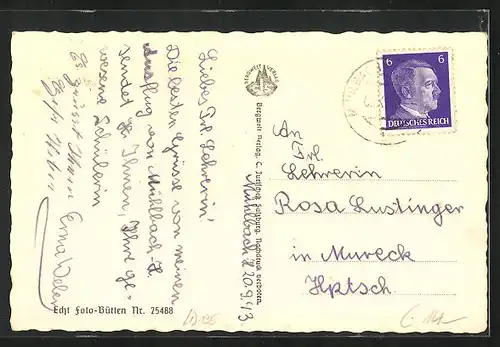 Liebes Frl. Lehrerin!
Die besten Grüsse von meinem
Ausflug von Mühlbach-H.
sendet Ihnen, Ihre ge-
wesene Schülerin
Erna Weber
Es grüsst Ihnen
Mühlbach, 20.9.43
BERGWELT VERLAG
Bergwelt Verlag, C. Jurischek, Salzburg. Nachdruck verboten.
Echt Foto-Bütten Nr. 25488
6 6
DEUTSCHES REICH
An
Frl.
Lehrerin
Rosa Lustinger
in Mureck
Hptsch.